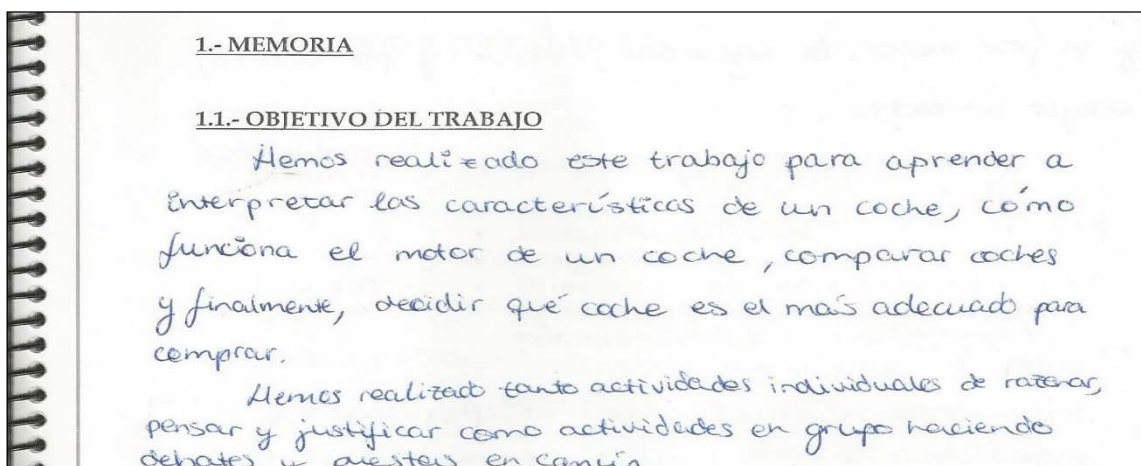 1.- MEMORIA
1.1.- OBJETIVO DEL TRABAJO
Hemos realizado este trabajo para aprender a
interpretar las características de un coche, cómo
funciona el motor de un coche, comparar coches
y finalmente, decidir qué coche es el más adecuado para
comprar.
Hemos realizado tanto actividades individuales de razonar,
pensar y justificar como actividades en grupo haciendo
debates y puestas en común